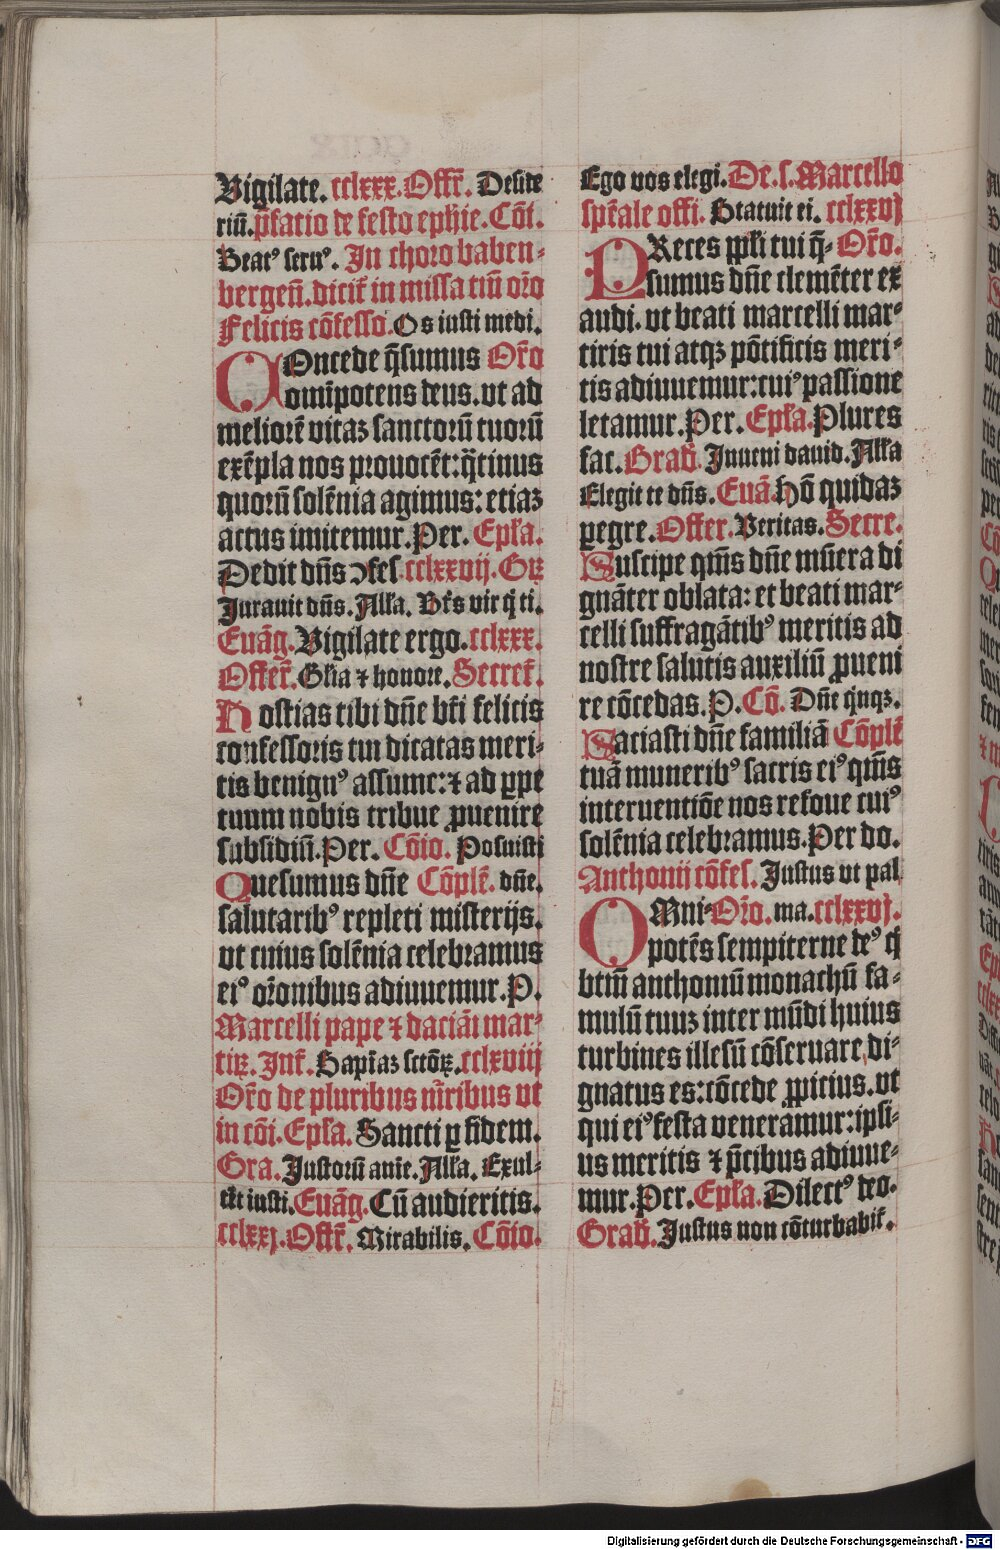 Vigilate. cclxxx. Offr̄. Deside
riū. p̄fatio de festo ephie. Cōi.
Beatꝰ seruꝰ. In choro baben-
bergeñ. dicit̄ in missa cū or̄o
Felicis cōfesso. Os iusti medi.
COncede q̄sumus Or̄o
omīpotens deus. vt ad
meliorē vitaz sanctorū tuorū
exēpla nos prouocēt: q̄tinus
quorū solēnia agimus: etiaz
actus imitemur. Per. Epl̄a.
Dedit dn̄s ↄfes. cclxxvij. Gꝝ
Jurauit dn̄s. All̄a. Bt̄s vir q̄ ti.
Euāg. Vigilate ergo. cclxxx.
Offer̄. Gl̄ia ⁊ honore. Secret̄.
Hostias tibi dn̄e bt̄i felicis
confessoris tui dicatas meri-
tis benignꝰ assume: ⁊ ad ꝑpe
tuum nobis tribue ꝓuenire
subsidiū. Per. Cōio. Posuisti
Quesumus dn̄e Cōplē. dn̄e.
salutaribꝰ repleti misterijs.
vt cuius solēnia celebramus
eiꝰ or̄onibus adiuuemur. P.
Marcelli pape ⁊ daciāi mar-
tiꝝ. Int̄. Sapīaz sctōꝝ. cclxviij
Or̄o de pluribus mr̄ibus vt
in cōi. Epl̄a. Sancti ꝑ fidem.
Gra. Justorū anīe. All̄a. Exul-
tēt iusti. Euāg. Cū audieritis.
cclxxj. Offr̄. Mirabilis. Cōio.
Ego vos elegi. De. s. Marcello
spēale offi. Statuit ei. cclxxvj
PReces ppl̄i tui q̄- Or̄o.
sumus dn̄e clemēter ex
audi. vt beati marcelli mar-
tiris tui atqꝫ pōtificis meri-
tis adiuuemur: cuiꝰ passione
letamur. Per. Epl̄a. Plures
fac. Grad̄. Jnueni dauid. All̄a
Elegit te dn̄s. Euā. Hō quidaz
pegre. Offer. Veritas. Secre.
Suscipe qm̄s dn̄e mūera di
gnāter oblata: et beati mar-
celli suffragātibꝰ meritis ad
nostre salutis auxiliū ꝓueni
re cōcedas. P. Cō. Dn̄e q̄nqꝫ.
Saciasti dn̄e familiā Cōplē
tuā muneribꝰ sacris eiꝰ qm̄s
interuentiōe nos refoue cuiꝰ
solēnia celebramus. Per do.
Anthonij cōfes. Justus vt pal
OMni- Or̄o. ma. cclxxvj.
potēs sempiterne deꝰ q̄
btm̄ anthoniū monachū fa-
mulū tuuz inter mūdi huius
turbines illesū cōseruare di-
gnatus es: cōcede ꝓpicius. vt
qui eiꝰ festa veneramur: ipsi-
us meritis ⁊ p̄cibus adiuue-
mur. Per. Epl̄a. Dilectꝰ deo.
Grad̄. Justus non cōturbabit̄.
Digitalisierung gefördert durch die Deutsche Forschungsgemeinschaft - DFG